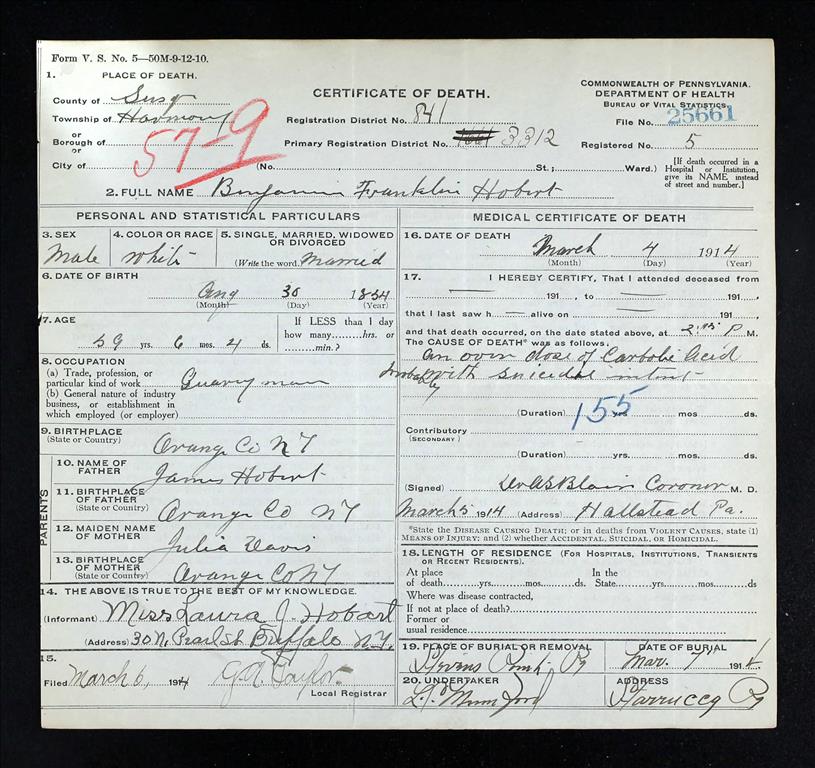 Form V. S. No. 5—50M-9-12-10.
1. PLACE OF DEATH.
County of Susq
Township of Harmony
or
Borough of
or
City of
57-9
CERTIFICATE OF DEATH.
Registration District No. 841
Primary Registration District No. 3312
(No. St.; Ward.)
COMMONWEALTH OF PENNSYLVANIA.
DEPARTMENT OF HEALTH
BUREAU OF VITAL STATISTICS.
File No. 25661
Registered No. 5
[If death occurred in a Hospital or Institution, give its NAME instead of street and number.]
2. FULL NAME Benjamin Franklin Hobert
PERSONAL AND STATISTICAL PARTICULARS
3. SEX
Male
4. COLOR OR RACE
White
5. SINGLE, MARRIED, WIDOWED OR DIVORCED
(Write the word.) Married
6. DATE OF BIRTH
Aug 30 1854
(Month) (Day) (Year)
7. AGE
59 yrs. 6 mos. 4 ds.
If LESS than 1 day how many.......hrs. or .......min.?
8. OCCUPATION
(a) Trade, profession, or particular kind of work Quarryman
(b) General nature of industry business, or establishment in which employed (or employer)
9. BIRTHPLACE
(State or Country) Orange Co NY
PARENTS
10. NAME OF FATHER James Hobert
11. BIRTHPLACE OF FATHER
(State or Country) Orange Co NY
12. MAIDEN NAME OF MOTHER Julia Davis
13. BIRTHPLACE OF MOTHER
(State or Country) Orange Co NY
14. THE ABOVE IS TRUE TO THE BEST OF MY KNOWLEDGE.
(Informant) Miss Laura J. Hobart
(Address) 30 N. Pearl St Buffalo N.Y.
15.
Filed March 6, 1914 G.A. Taylor
Local Registrar
MEDICAL CERTIFICATE OF DEATH
16. DATE OF DEATH
March 4 1914
(Month) (Day) (Year)
17. I HEREBY CERTIFY, That I attended deceased from
191 , to 191 ,
that I last saw h — alive on 191 ,
and that death occurred, on the date stated above, at P M.
The CAUSE OF DEATH* was as follows:
An over dose of Carbolic Acid
Probably with suicidal intent
155
(Duration) yrs. mos ds.
Contributory
(SECONDARY)
(Duration) yrs. mos. ds.
(Signed) Dr A S Blair Coroner M. D.
March 5 1914 (Address) Hallstead Pa.
*State the DISEASE CAUSING DEATH; or in deaths from VIOLENT CAUSES, state (1) MEANS OF INJURY; and (2) whether ACCIDENTAL, SUICIDAL, OR HOMICIDAL.
18. LENGTH OF RESIDENCE (FOR HOSPITALS, INSTITUTIONS, TRANSIENTS OR RECENT RESIDENTS).
At place of death.......yrs.......mos.......ds. In the State.......yrs.......mos.......ds
Where was disease contracted,
If not at place of death?
Former or usual residence
19. PLACE OF BURIAL OR REMOVAL
Stevens Pa
DATE OF BURIAL
Mar. 7 1914
20. UNDERTAKER
L. P. Mumford
ADDRESS
Starrucca Pa